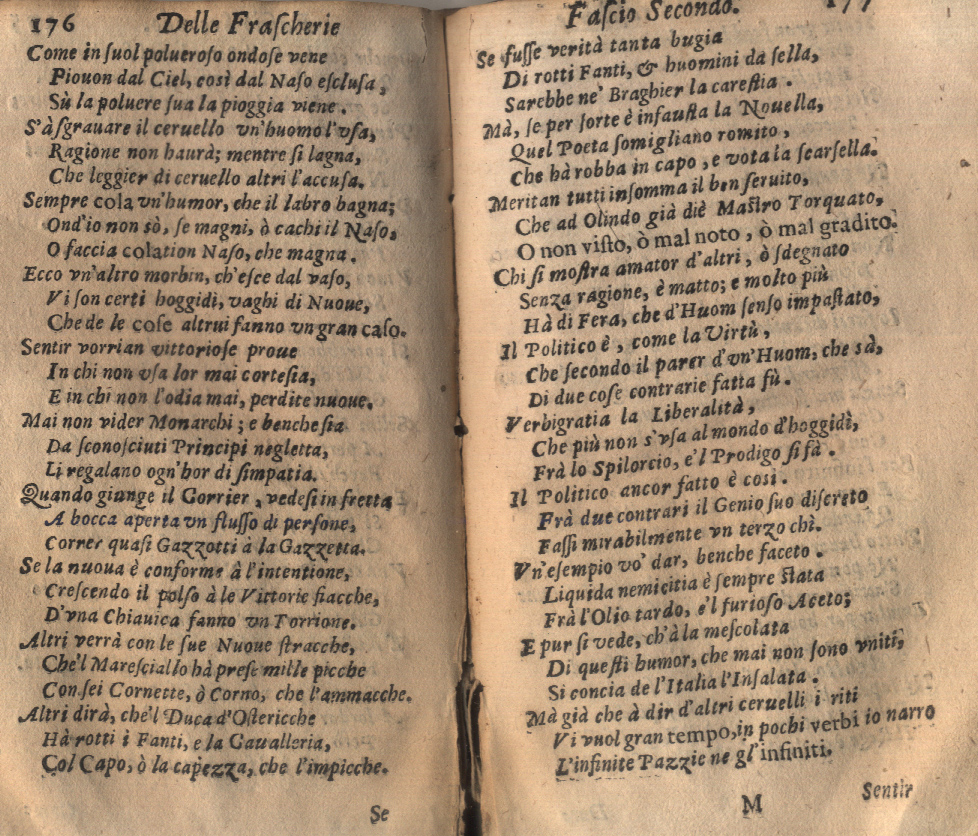 176 Delle Fraſcherie
Come in ſuol polueroſo ondoſe vene
Piouon dal Ciel, così dal Naſo eſcluſa,
Sù la poluere ſua la pioggia viene.
S'à ſgrauare il ceruello vn'huomo l'vſa,
Ragione non haurà; mentre ſi lagna,
Che leggier di ceruello altri l'accuſa.
Sempre cola vn'humor, che il labro bagna;
Ond'io non sò, ſe magni, ò cachi il Naſo,
O faccia colation Naſo, che magna.
Ecco vn'altro morbin, ch'eſce dal vaſo,
Vi ſon certi hoggidì, vaghi di Nuoue,
Che de le coſe altrui fanno vn gran caſo.
Sentir vorrian vittorioſe proue
In chi non vſa lor mai corteſia,
E in chi non l'odia mai, perdite nuoue.
Mai non vider Monarchi; e benche ſia
Da ſconoſciuti Principi negletta,
Li regalano ogn'hor di ſimpatia.
Quando giunge il Corrier, vedeſi in fretta
A bocca aperta vn fluſſo di perſone,
Correr quaſi Gazzotti à la Gazzetta.
Se la nuoua è conforme à l'intentione,
Creſcendo il polſo à le Vittorie fiacche,
D'vna Chiauica fanno vn Torrione.
Altri verrà con le ſue Nuoue ſtracche,
Che'l Mareſciallo hà preſe mille picche
Con ſei Cornette, ò Corno, che l'ammacche.
Altri dirà, che'l Duca d'Oſtericche
Hà rotti i Fanti, e la Caualleria,
Col Capo, ò la capezza, che l'impicche.
Se
Faſcio Secondo. 177
Se fuſſe verità tanta bugia
Di rotti Fanti, & huomini da ſella,
Sarebbe ne' Braghier la careſtia.
Mà, ſe per ſorte è infauſta la Nouella,
Quel Poeta ſomigliano romito,
Che hà robba in capo, e vota la ſcarſella.
Meritan tutti inſomma il ben ſeruito,
Che ad Olindo già diè Maſtro Torquato,
O non viſto, ò mal noto, ò mal gradito.
Chi ſi moſtra amator d'altri, ò ſdegnato
Senza ragione, è matto; e molto più
Hà di Fera, che d'Huom ſenſo impaſtato,
Il Politico è, come la Virtù,
Che ſecondo il parer d'vn'Huom, che sà,
Di due coſe contrarie fatta fù.
Verbigratia la Liberalità,
Che più non s'vſa al mondo d'hoggidì,
Frà lo Spilorcio, e'l Prodigo ſi fà.
Il Politico ancor fatto è così.
Frà due contrari il Genio ſuo diſcreto
Faſſi mirabilmente vn terzo chì.
Vn'eſempio vo' dar, benche faceto.
Liquida nemicitia è ſempre ſtata
Frà l'Olio tardo, e'l furioſo Aceto;
E pur ſi vede, ch'à la meſcolata
Di queſti humor, che mai non ſono vniti,
Si concia de l'Italia l'Inſalata.
Mà già che à dir d'altri ceruelli i riti
Vi vuol gran tempo, in pochi verbi io narro
L'infinite Pazzie ne gl'infiniti.
M Sentir